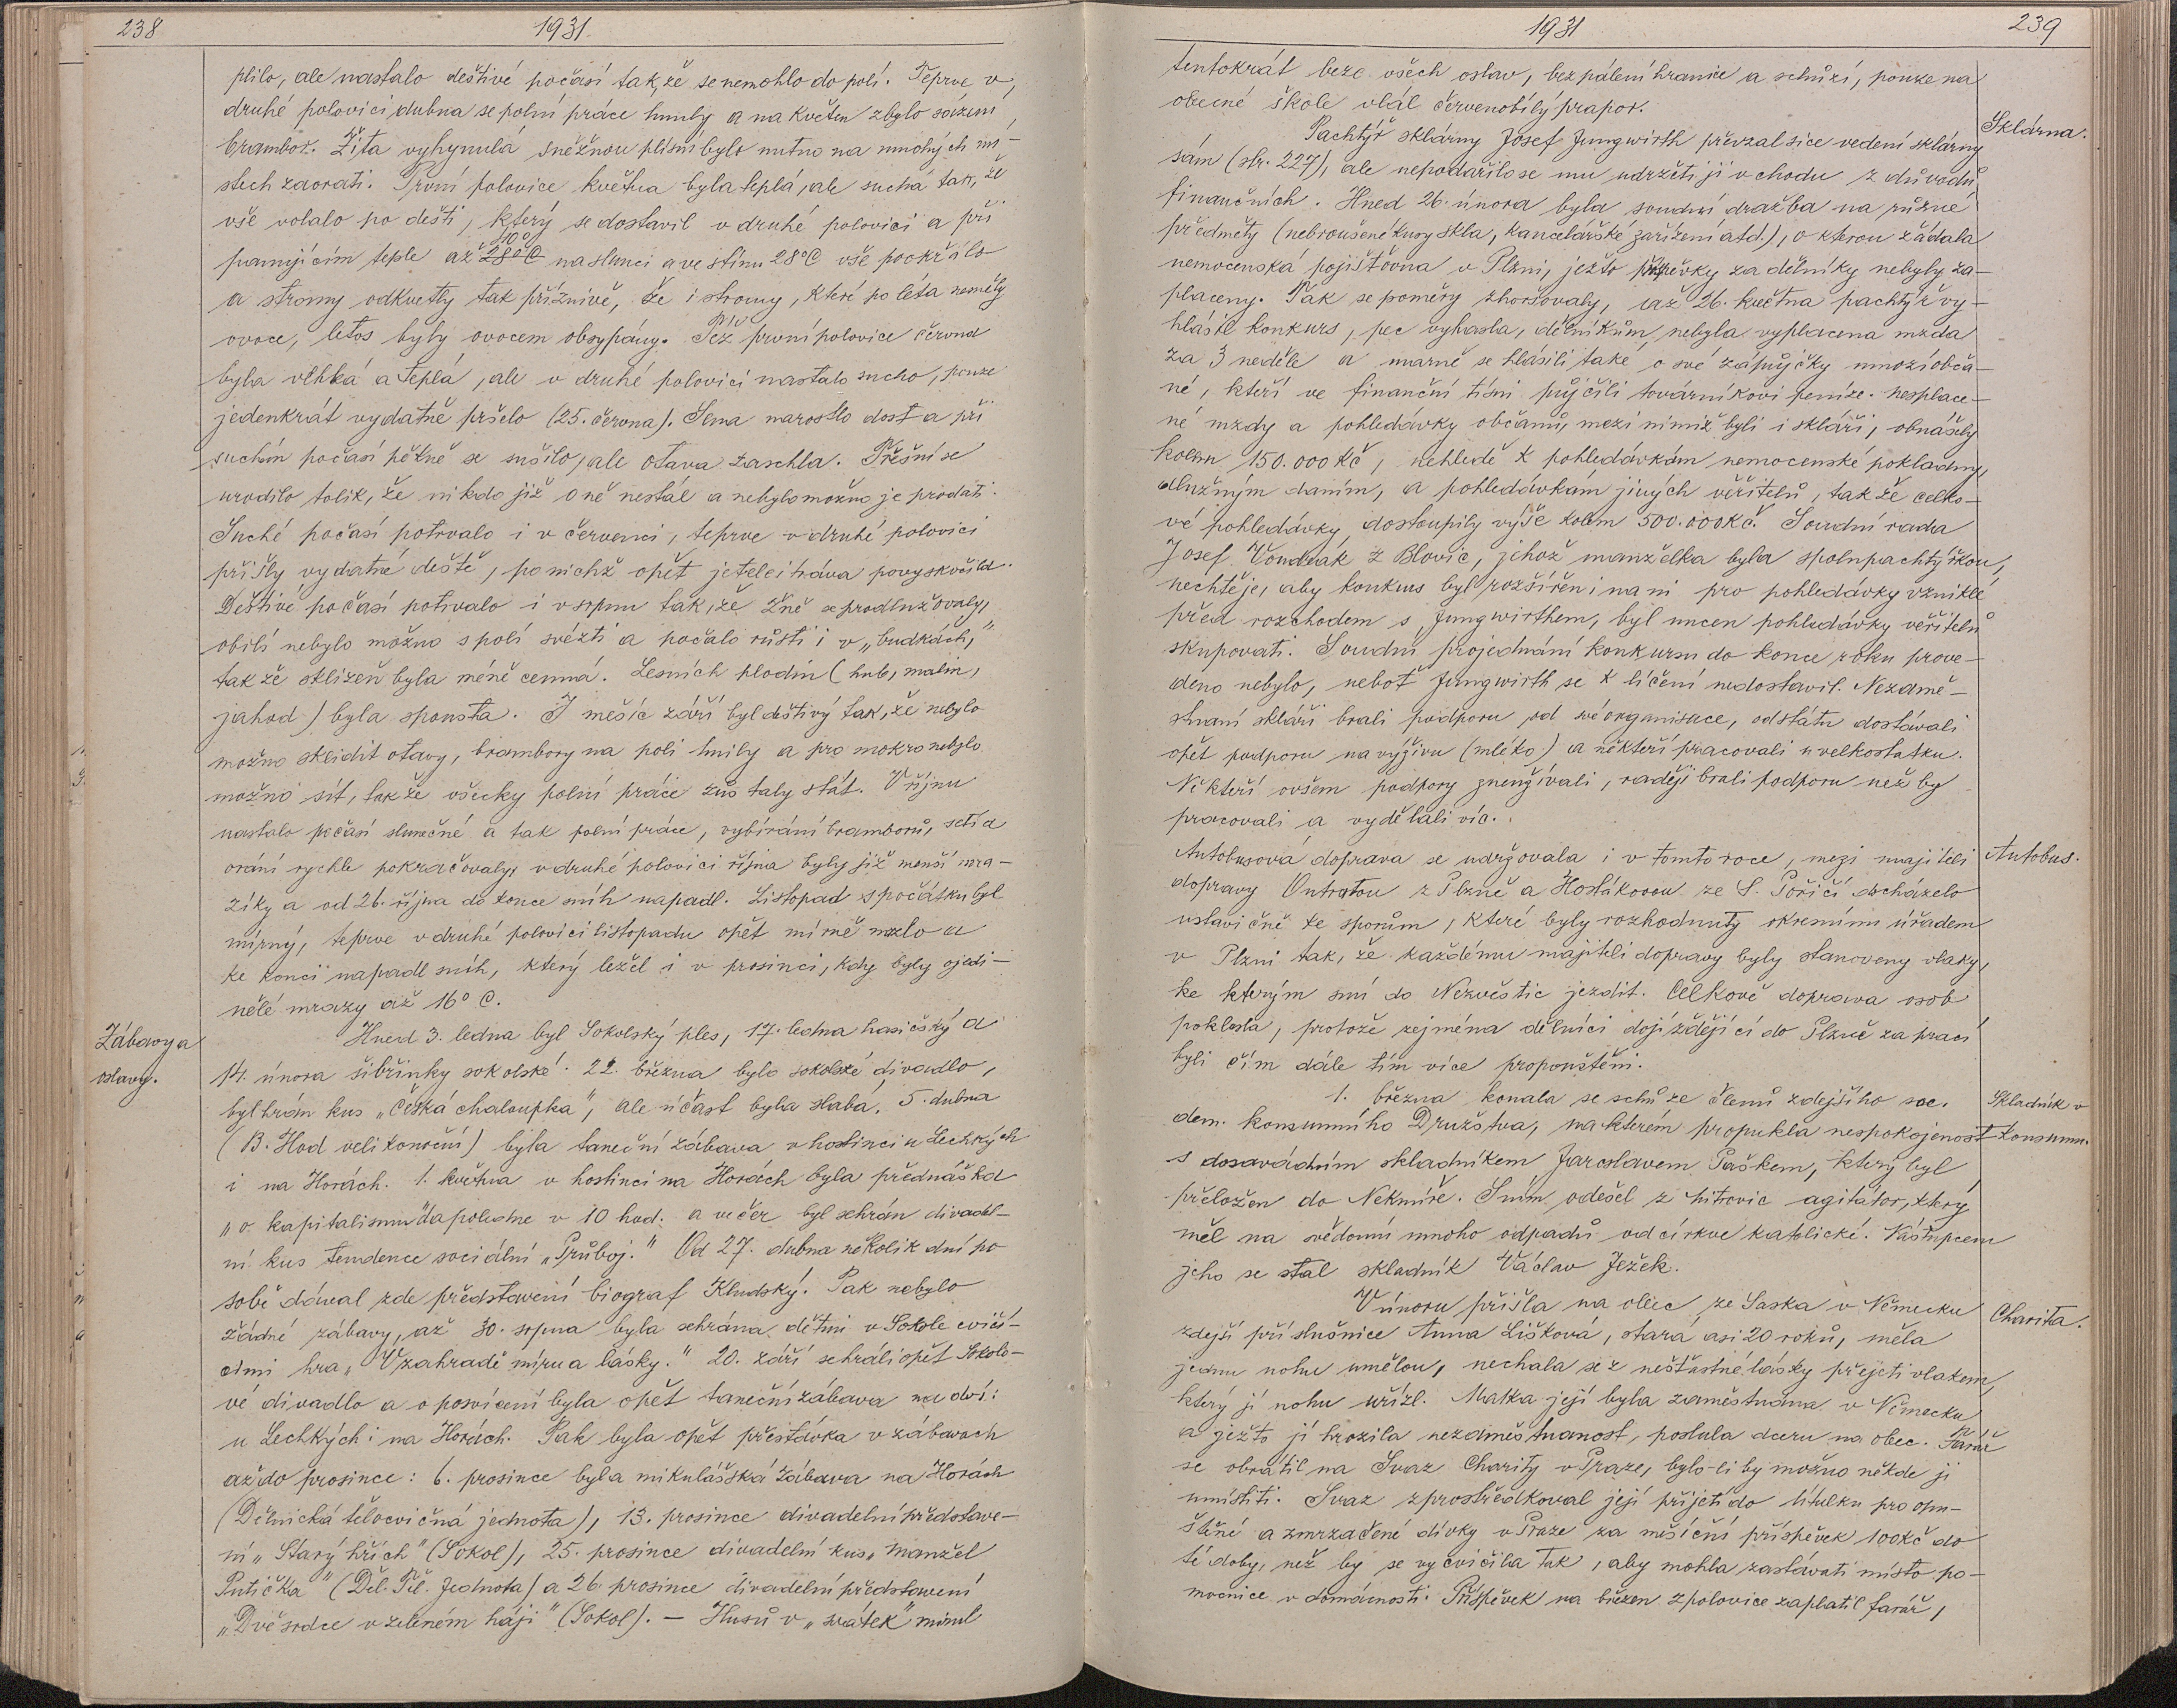 238
1931
plilo, ale nastalo deštivé počasí tak, že se nemohlo do polí. Teprve v
druhé polovici dubna se polní práce hnuly a na květen zbylo sázení
brambor. Žita vyhynulá sněžnou plísní bylo nutno na mnohých mí-
stech zaorati. První polovice května byla teplá, ale suchá tak, že
vše volalo po dešti, který se dostavil v druhé polovici a při
panujícím teple až 28°C 40° na slunci a ve stínu 28°C vše pookřálo
a stromy odkvetly tak příznivě, že i stromy, které po léta neměly
ovoce, letos byly ovocem obsypány. Též první polovice června
byla vlhká a teplá, ale v druhé polovici nastalo sucho, pouze
jedenkrát vydatně pršelo (25. června). Sena narostlo dost a při
suchém počasí pěkně se sušilo, ale otava zaschla. Třešní se
urodilo tolik, že nikdo již o ně nestál a nebylo možno je prodati.
Suché počasí potrvalo i v červenci, teprve v druhé polovici
přišly vydatné deště, po nichž opět jetel i tráva povyskočila.
Deštivé počasí potrvalo i v srpnu tak, že žně se prodlužovaly,
obilí nebylo možno s polí svézti a počalo růsti i v „budkách,"
tak že sklizeň byla méně cenná. Lesních plodin (hub, malin,
jahod) byla spousta. I měsíc září byl deštivý tak, že nebylo
možno sklidit otavy, brambory na poli hnily a pro mokro nebylo
možno sít, takže všecky polní práce zůstaly stát. V říjnu
nastalo počasí slunečné a tak polní práce, vybírání bramborů, setí a
orání rychle pokračovaly, v druhé polovici října byly již menší mra-
zíky a od 26. října do konce sníh napadl. Listopad s počátku byl
mírný, teprve v druhé polovici listopadu opět mírně mrzlo a
ke konci napadl sníh, který ležel i v prosinci, kdy byly ojedi-
nělé mrazy až 16° C.
Zábavy a
oslavy.
Hned 3. ledna byl Sokolský ples, 17. ledna hasičský a
14. února šibřinky sokolské. 22. března bylo sokolské divadlo,
byl hrán kus „Česká chaloupka", ale účast byla slabá. 5. dubna
(B. Hod velikonoční) byla taneční zábava v hostinci u Lechkých
i na Horách. 1. května v hostinci na Horách byla přednáška
„o kapitalismu" dopoledne v 10 hod. a večer byl sehrán divadel-
ní kus tendence sociální „Průboj." Od 27. dubna několik dní po
sobě dával zde představení biograf Kludský. Pak nebylo
žádné zábavy, až 30. srpna byla sehrána dětmi v Sokole cvičí-
cími hra „V zahradě míru a lásky." 20. září sehráli opět Sokolo-
vé divadlo a o posvícení byla opět taneční zábava na dví:
u Lechkých i na Horách. Pak byla opět přestávka v zábavách
až do prosince: 6. prosince byla mikulášská zábava na Horách
(Dělnická tělocvičná jednota), 13. prosince divadelní představe-
ní „Starý hřích" (Sokol), 25. prosince divadelní kus „Manžel
Putička" (Děl. Těl. Jednota) a 26. prosince divadelní představení
„Dvě srdce v zeleném háji" (Sokol). — Husův „svátek" minul
1931
239
tentokrát beze všech oslav, bez pálení hranice a schůzí, pouze na
obecné škole vlál červenobílý prapor.
Sklárna.
Pachtýř sklárny Josef Jungwirth převzal sice vedení sklárny
sám (str. 227), ale nepodařilo se mu udržeti ji v chodu z důvodů
finančních. Hned 26. února byla soudní dražba na různé
předměty (nebroušené kusy skla, kancelářské zařízení atd.), o kterou žádala
nemocenská pojišťovna v Plzni, ježto příspěvky za dělníky nebyly za-
placeny. Tak se poměry zhoršovaly, až 26. května pachtýř vy-
hlásil konkurs, pec vyhasla, dělníkům nebyla vyplacena mzda
za 3 neděle a marně se hlásili také o své zápůjčky mnozí obča-
né, kteří ve finanční tísni půjčili továrníkovi peníze. Nesplace-
né mzdy a pohledávky občanů, mezi nimiž byli i skláři, obnášely
kolem 150.000 Kč, nehledě k pohledávkám nemocenské pokladny,
dlužným daním, a pohledávkám jiných věřitelů, tak že celko-
vé pohledávky dostoupily výše kolem 500.000 Kč. Soudní rada
Josef Voudrák z Blovic, jehož manželka byla spolupachtýřkou,
nechtěje, aby konkurs byl rozšířen i na ni pro pohledávky vzniklé
před rozchodem s Jungwirthem, byl nucen pohledávky věřitelů
skupovati. Soudní projednání konkursu do konce roku prove-
deno nebylo, neboť Jungwirth se k líčení nedostavil. Nezamě-
stnaní skláři brali podporu od své organisace, od státu dostávali
opět podporu na výživu (mléko) a někteří pracovali u velkostatku.
Někteří ovšem podpory zneužívali, raději brali podporu než by
pracovali a vydělali víc.
Autobus.
Autobusová doprava se udržovala i v tomto roce, mezi majiteli
dopravy Outratou z Plzně a Hostákovou ze S. Poříčí docházelo
ustavičně ke sporům, které byly rozhodnuty okresním úřadem
v Plzni tak, že každému majiteli dopravy byly stanoveny vlaky,
ke kterým smí do Nezvěstic jezdit. Celkově doprava osob
poklesla, protože zejména dělníci dojíždějící do Plzně za prací
byli čím dále tím více propouštěni.
Skladník v
konsumu.
1. března konala se schůze členů zdejšího soc.
dem. konsumního Družstva, na kterém propukla nespokojenost
s dosavadním skladníkem Jaroslavem Paškem, který byl
přeložen do Nekmíře. S ním odešel z Mitrovic agitátor, který
měl na svědomí mnoho odpadů od církve katolické. Nástupcem
jeho se stal skladník Václav Ježek.
Charita.
V únoru přišla na obec ze Saska v Německu
zdejší příslušnice Anna Lišková, stará asi 20 roků, měla
jednu nohu umělou, nechala se z nešťastné lásky přejeti vlakem,
který jí nohu uřízl. Matka její byla zaměstnána v Německu
a ježto jí hrozila nezaměstnanost, poslala dceru na obec. Farář
se obrátil na Svaz Charity v Praze, bylo-li by možno někde ji
umístiti. Svaz zprostředkoval její přijetí do útulku pro opu-
štěné a zmrzačené dívky v Praze za měsíční příspěvek 100 Kč do
té doby, než by se vycvičila tak, aby mohla zastávati místo po-
mocnice v domácnosti. Příspěvek na březen z polovice zaplatil farář,